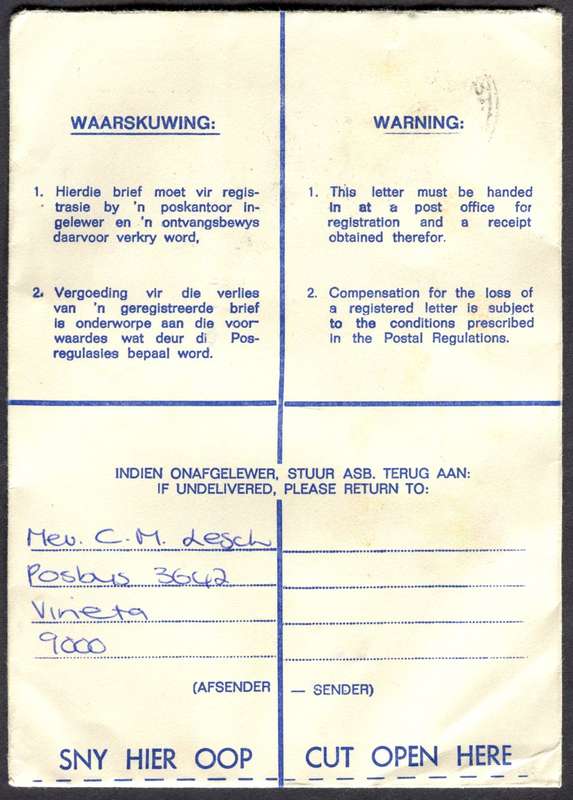 WAARSKUWING:
1. Hierdie brief moet vir regis-
trasie by 'n poskantoor in-
gelewer en 'n ontvangsbewys
daarvoor verkry word,
2. Vergoeding vir die verlies
van 'n geregistreerde brief
is onderworpe aan die voor-
waardes wat deur di Pos-
regulasies bepaal word.
WARNING:
1. This letter must be handed
in at a post office for
registration and a receipt
obtained therefor.
2. Compensation for the loss of
a registered letter is subject
to the conditions prescribed
in the Postal Regulations.
INDIEN ONAFGELEWER, STUUR ASB. TERUG AAN:
IF UNDELIVERED, PLEASE RETURN TO:
Mev. C. M. Lesch
Posbus 3642
Vineta
9000
(AFSENDER — SENDER)
SNY HIER OOP CUT OPEN HERE